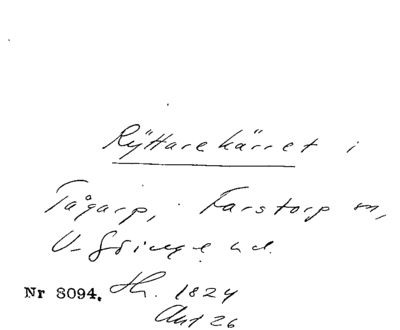 Ryttarekärret i
Tågarp, Farstorp m,
V. Göinge hd.
Nr 8094. Th. 1824
Akt 26